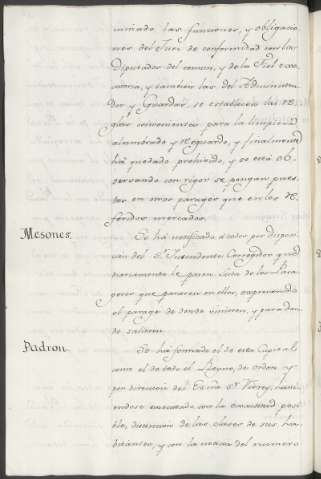 minado las funciones, y obligacio
nes del Juez de conformidad con los
Diputados del comun, y de la Fiel exe-
cutoria, y tambien las del Administra
dor y Guardas, se establecen las re
glas convenientes para la limpieza
alumbrado y resguardo, y finalmente
ha quedado prohivido, y se está ob
servando con rigor se pongan pues
tas en otros parages que en los re
feridos mercados.
Mesones.
Se ha notificado a todos por disposi
cion del S. Yntendente Corregidor que
diariamente le pasen Lista de los Pasa
geros que pararen en ellos, expresando
el parage de donde vinieren, y para don
de salieren.
Padron.
Se ha formado el de esta Capital
como el de todo el Reyno, de orden y
por direccion del Exmo. Sr. Virrey, havi
endose executado con la exactitud posi
ble, distincion de las clases de sus ha
bitantes, y con la razon del numero